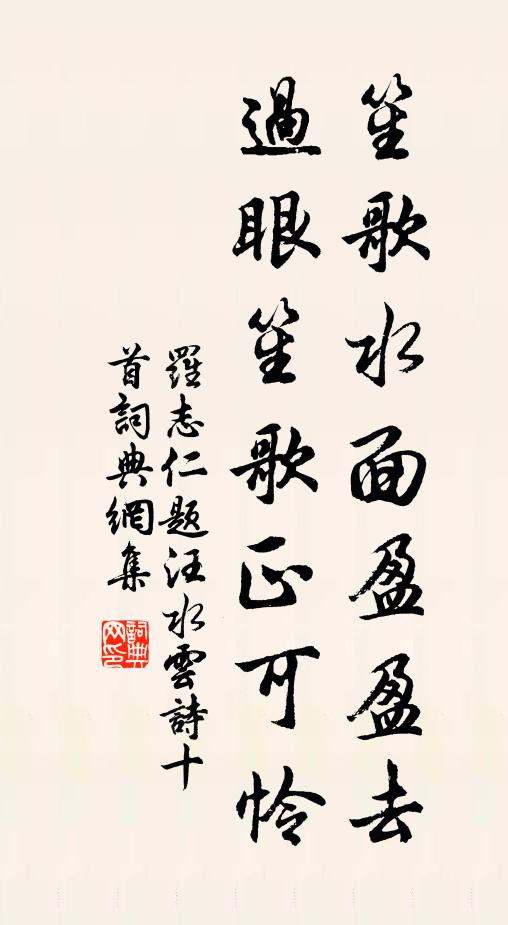 笙歌水面盈盈去
過眼笙歌正可怜
羅志仁题汪水雲詩十
首詞典網集
詞典网印